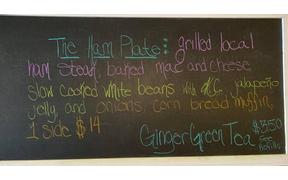 The Ham Plate: grilled local
ham steak, baked mac and cheese
slow cooked white beans with N.C. jalapeño
jelly, and onions, corn bread muffin,
1 side $14
Ginger Green Tea $3.50
See